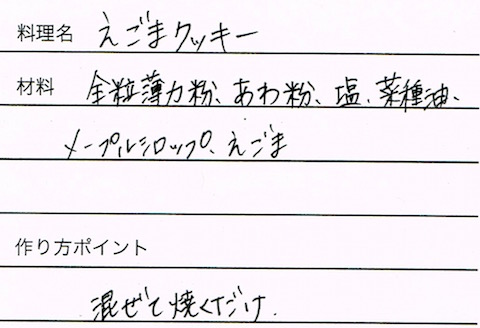 料理名 えごまクッキー
材料 全粒薄力粉、あわ粉、塩、菜種油、
メープルシロップ、えごま
作り方ポイント
混ぜて焼くだけ.